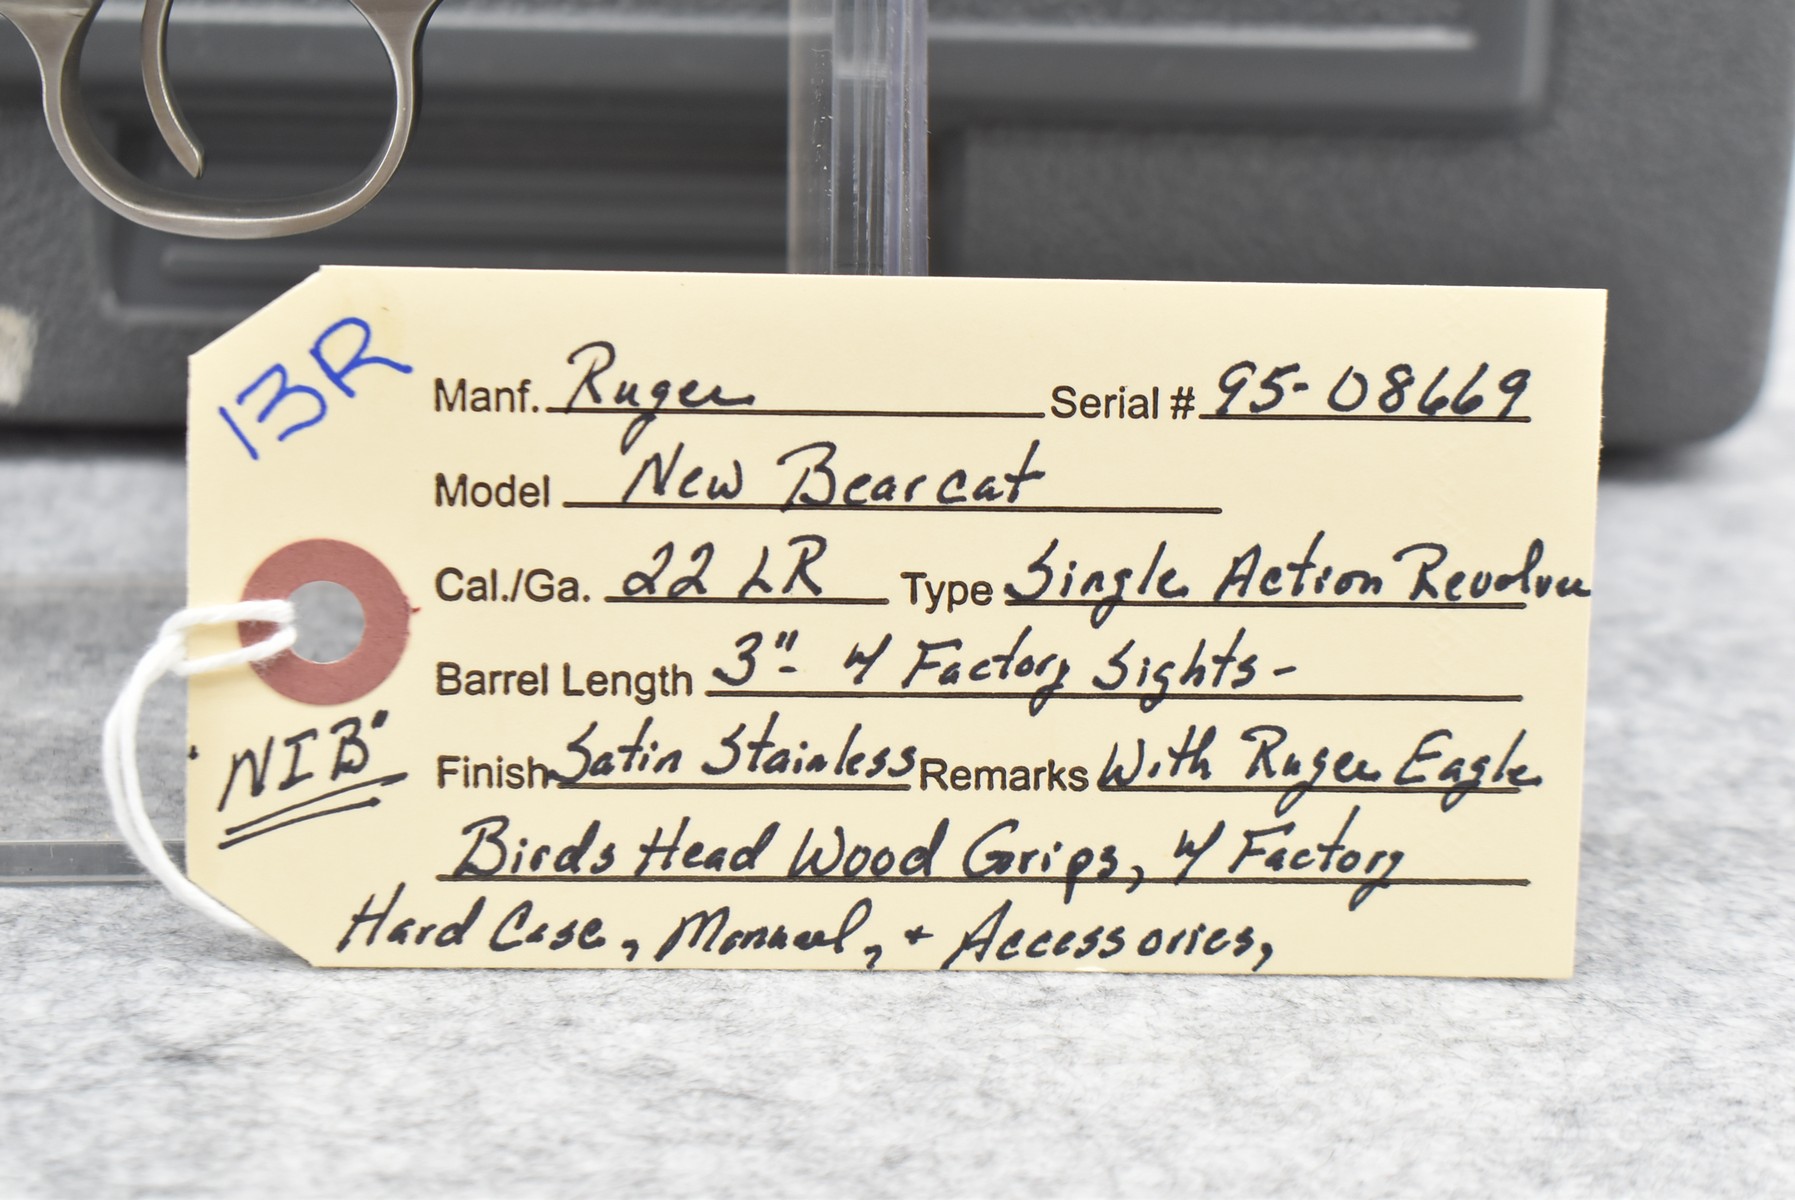 13R
Manf. Ruger Serial # 95-08669
Model New Bearcat
Cal./Ga. 22 LR Type Single Action Revolver
Barrel Length 3"- w/ Factory Sights-
"NIB"
Finish Satin Stainless Remarks With Ruger Eagle
Birds Head Wood Grips, w/ Factory
Hard Case, Manual, + Accessories,